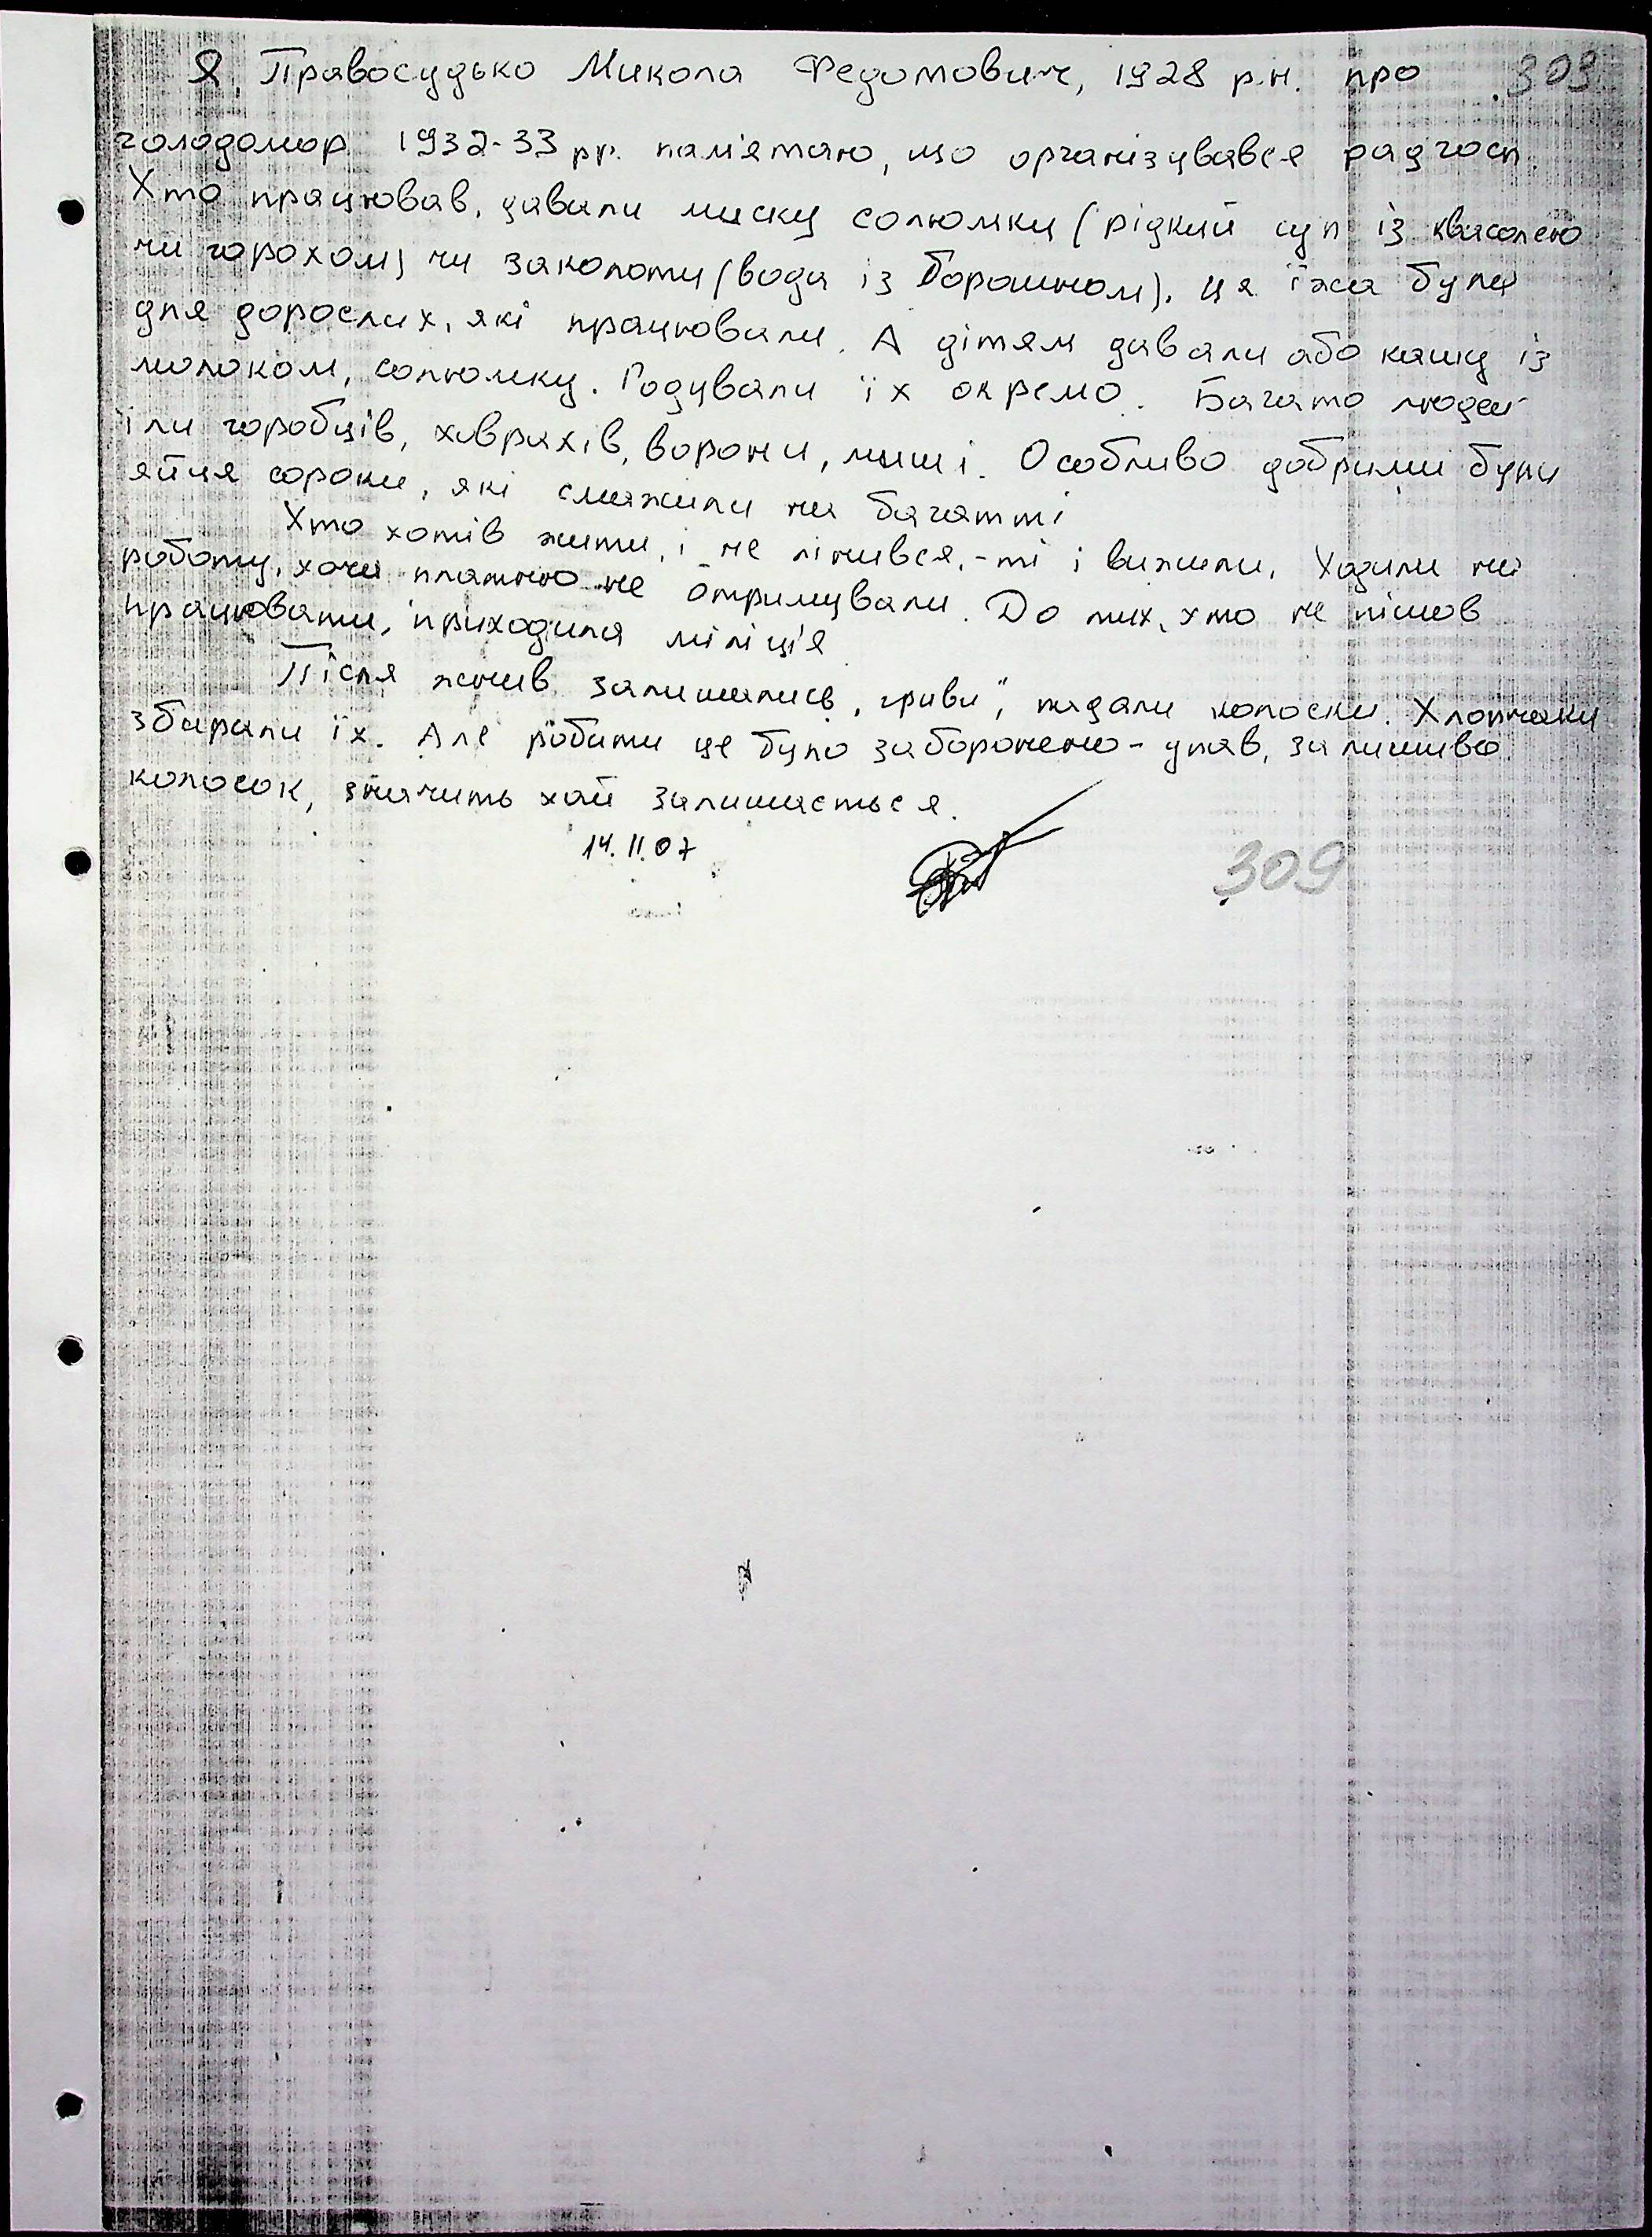 Я, Правосудько Микола Федотович, 1928 р.н. про 309
голодомор 1932-33 рр. пам'ятаю, що організувався радгосп.
Хто працював, давали миску солюмки (рідкий суп із квасолею
чи горохом) чи заколоти (вода із борошном). Ця їжа була
для дорослих, які працювали. А дітям давали або кашу із
молоком, солюмку. Годували їх окремо. Багато людей
їли горобців, ховрахів, ворони, миші. Особливо добрими були
яйця сороки, які смажили на багатті
Хто хотів жити, і не лінився, - ті і вижили. Ходили на
роботу, хоча платню не отримували. До тих, хто не пішов
працювати, приходила міліція
Після жнив залишались „гриви", падали колоски. Хлопчаки
збирали їх. Але робити це було заборонено - упав, залишився
колосок, значить хай залишається.
14.11.07
309